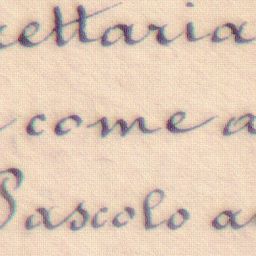 ettaria
come a
Pascolo a